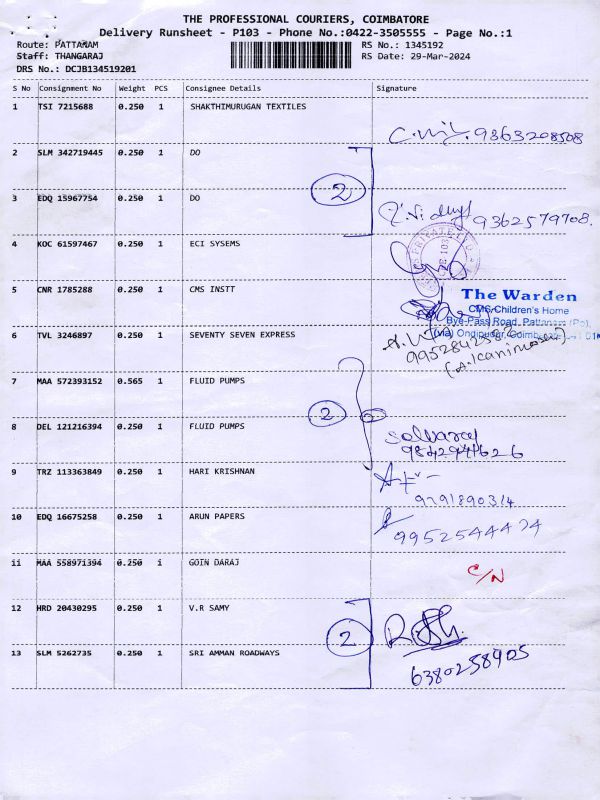 THE PROFESSIONAL COURIERS, COIMBATORE
Delivery Runsheet - P103 - Phone No.:0422-3505555 - Page No.:1
Route: PATTANAM RS No.: 1345192
Staff: THANGARAJ RS Date: 29-Mar-2024
DRS No.: DCJB134519201
S No Consignment No Weight PCS Consignee Details Signature
1 TSI 7215688 0.250 1 SHAKTHIMURUGAN TEXTILES
9363208508
2 SLM 342719445 0.250 1 DO
2
3 EDQ 15967754 0.250 1 DO
9362579708.
4 KOC 61597467 0.250 1 ECI SYSEMS
5 CNR 1785288 0.250 1 CMS INSTT
The Warden
CMS Children's Home
Bye-Pass Road, Pattanam (Po),
(via) Ondipudur, Coimbatore
6 TVL 3246897 0.250 1 SEVENTY SEVEN EXPRESS
7 MAA 572393152 0.565 1 FLUID PUMPS
2
8 DEL 121216394 0.250 1 FLUID PUMPS
Selvaraj
9 TRZ 113363849 0.250 1 HARI KRISHNAN
9791890314
10 EDQ 16675258 0.250 1 ARUN PAPERS
9952544474
11 MAA 558971394 0.250 1 GOIN DARAJ
C/N
12 HRD 20430295 0.250 1 V.R SAMY
2
13 SLM 5262735 0.250 1 SRI AMMAN ROADWAYS
6380258905